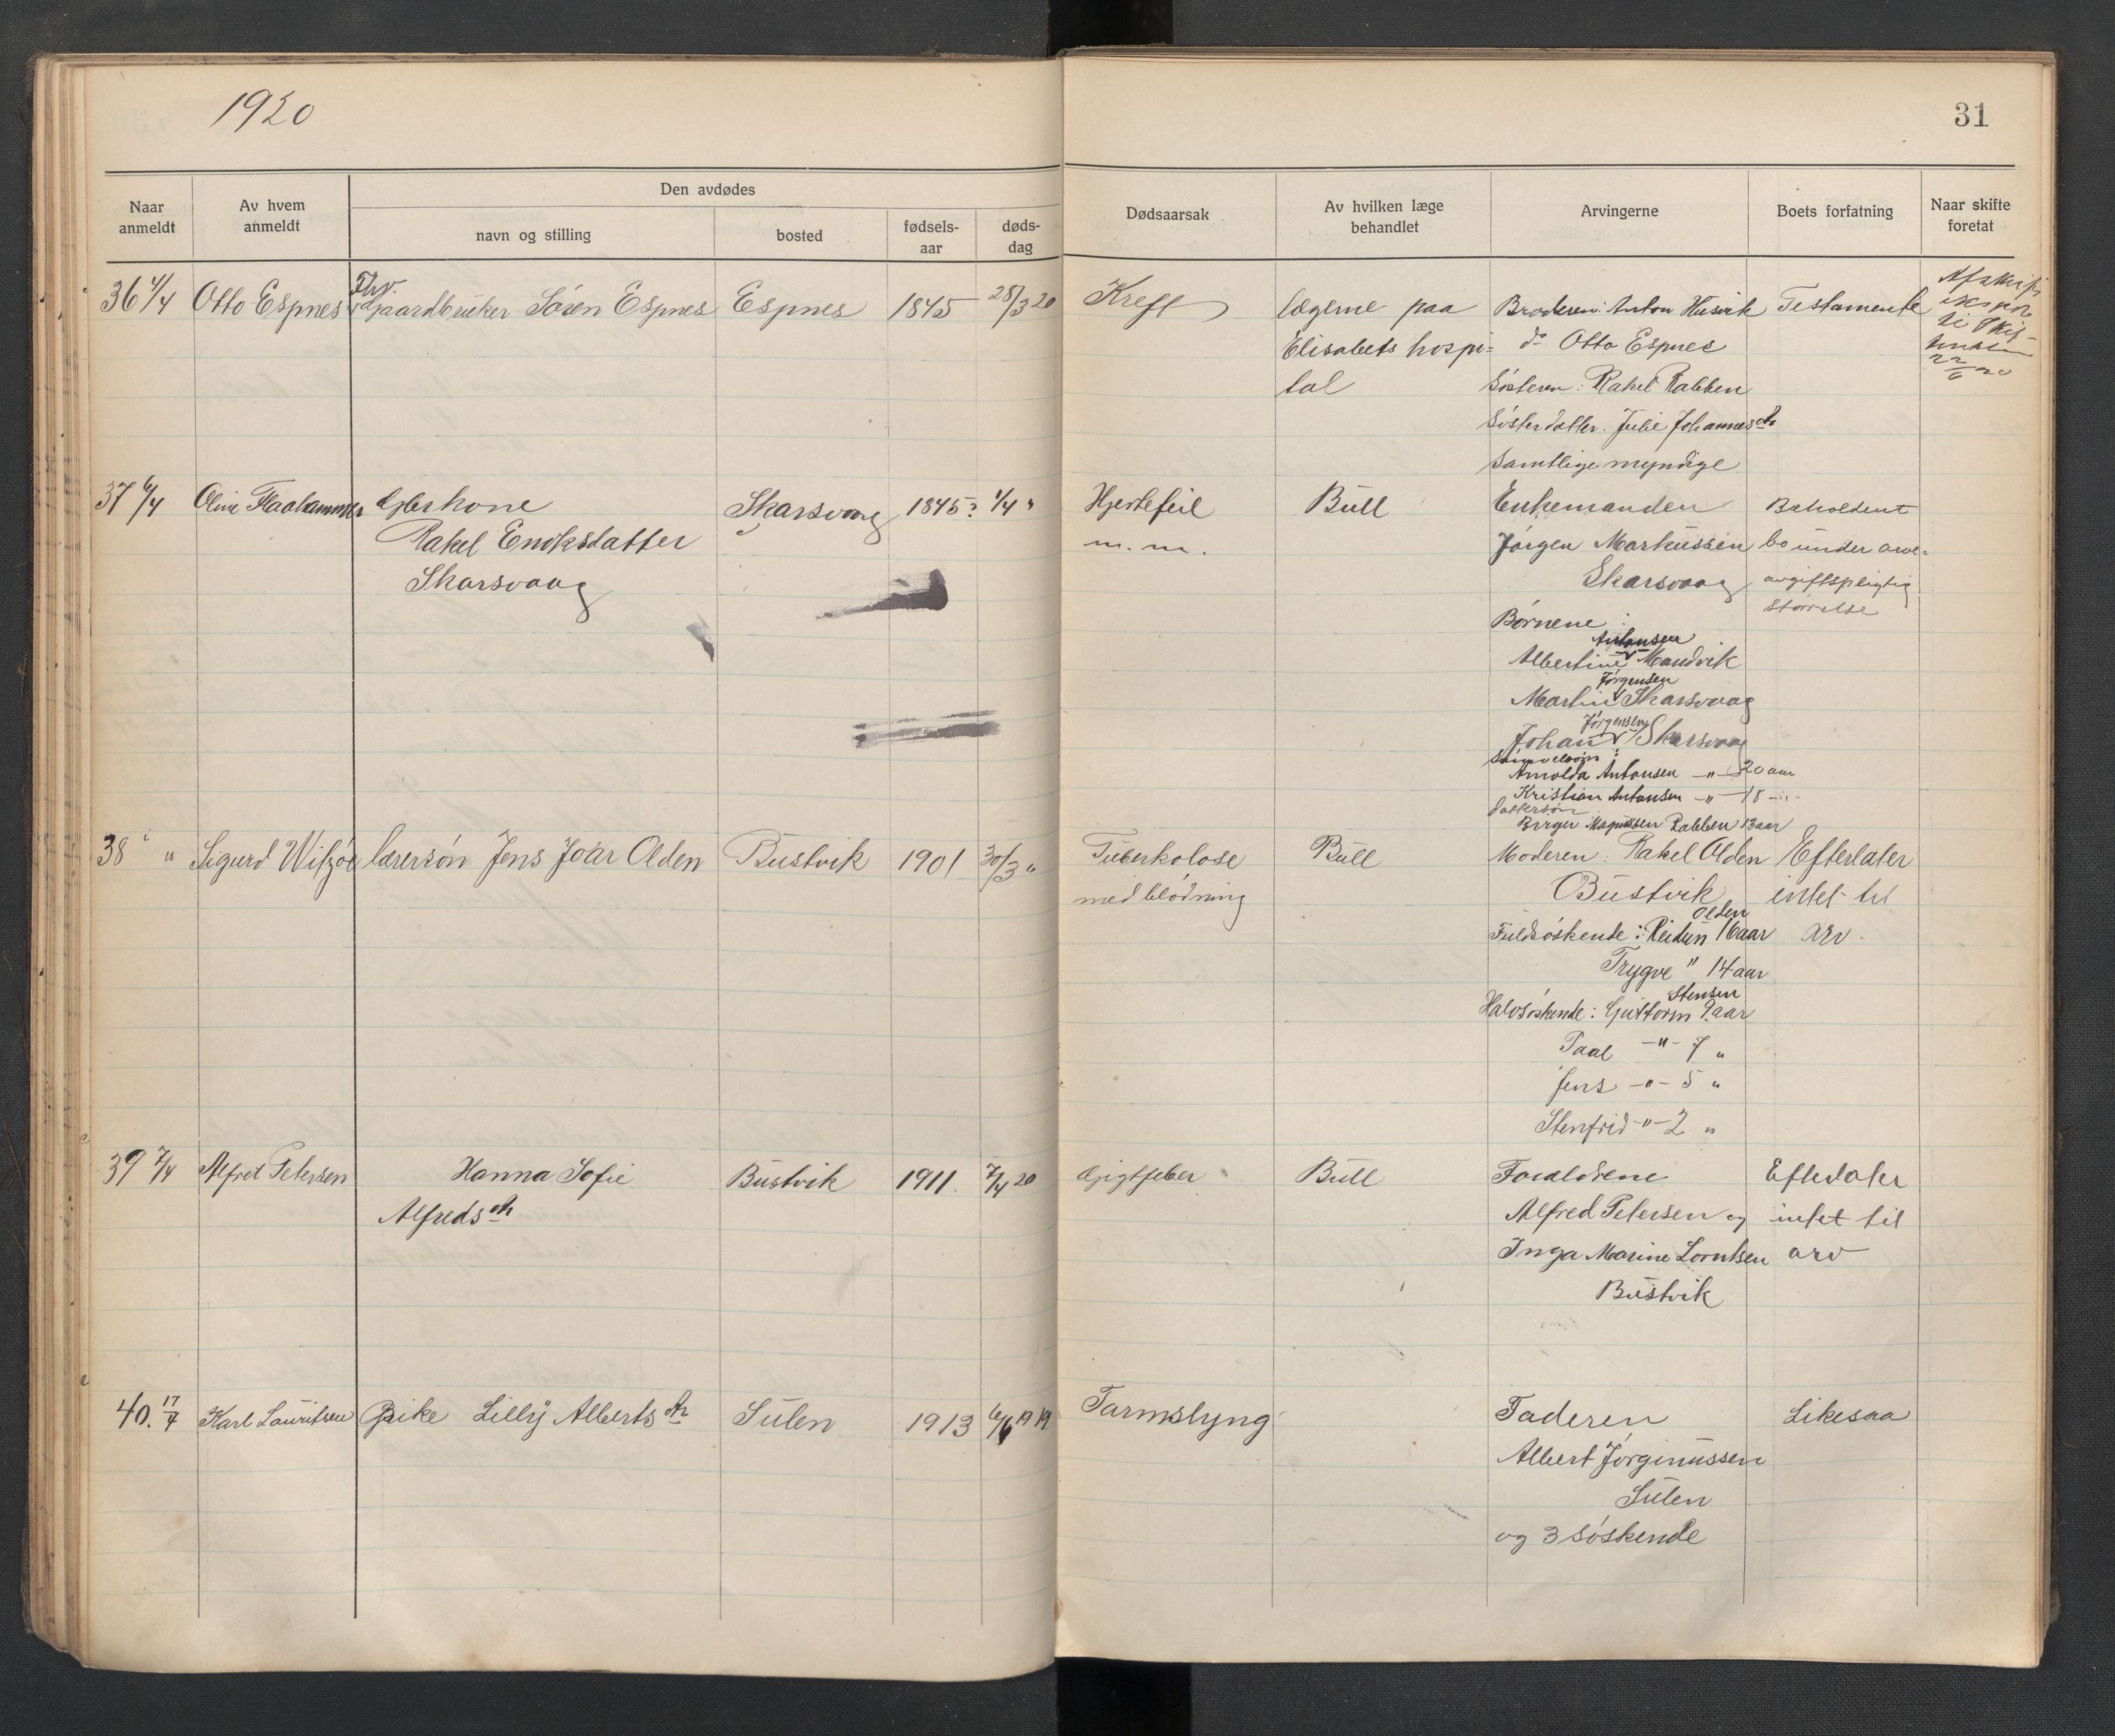 1920
31
Naar anmeldt
Av hvem anmeldt
Den avdødes
navn og stilling
bosted
fødsels-aar
døds-dag
Dødsaarsak
Av hvilken læge behandlet
Arvingerne
Boets forfatning
Naar skifte foretat
36 4/4 Otto Espnes Fhv. Gaardbruker Søren Espnes Espnes 1845 28/3 20
Kreft
lægerne paa
Elisabets hospi=
tal
Broderen: Anton Husvik
do Otto Espnes
Søsteren: Rakel Rabben
Søsterdatter. Julie Johannesdtr
samtlige myndige
Testamente
22/6 20
37 6/4 Oline Flaahammer Gbrkone
Rakel Enoksdatter
Skarsvaag
Skarsvaag 1845? 1/4 "
Hjertefeil
m. m.
Büll
Enkemanden
Jørgen Markussen
Skarsvaag
Børnene:
Antonsen
Albertine Mandvik
Jørgensen
Martin Skarsvaag
Jørgensen
Johan Skarsvaag
Arnolda Antonsen -"- 20 aar
Kristian Antonsen -"- 18 -"-
Dattersøn
Birger Magnussen Rabben 13 aar
Beholdent
bo under arve=
avgiftspligtig
størrelse
38 " " Sigurd Wifzøe lærersøn Jens Joar Olden Bustvik 1901 30/3 "
Tuberkolose
med blødning
Büll
Moderen: Rakel Olden
Bustvik
Olden
Fuldsøskende: Reidun 16 aar
Trygve " 14 aar
Stensen
Halvsøskende: Guttorm 9 aar
Paal -"- 7 "
Jens -"- 5 "
Stenfrid -"- 2 "
Efterlater
intet til
arv.
39 7/4 Alfred Petersen Hanna Sofie
Alfredsdtr
Bustvik 1911. 7/4 20
Gigtfeber
Büll
Forældrene
Alfred Petersen og
Inga Marine Lorntsen
Bustvik
Efterlater
intet til
arv
40. 17/4 Karl Lauritsen Pike Lilly Albertsdtr Sulen 1913 6/6 1919
Tarmslyng
Faderen
Albert Jørginussen
Sulen
og 3 søskende
Likesaa